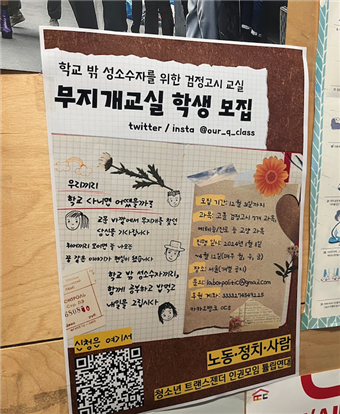 학교 밖 성소수자를 위한 검정고시 교실
무지개교실 학생 모집
twitter / insta @our_q_class
우리끼리
학교 다니면 어땠을까?
교문 바깥에서 무지개를 찾던
당신을 기다립니다
퀴어끼리 모이면 늘 나오는
꿈 같은 이야기가 현실이 됐습니다
학교 밖 성소수자끼리,
함께 공부하고 밥먹고
내일을 그립시다
모집 기간: 12월 31일까지
과목: 고졸 검정고시 7개 과목,
등 교양 과목
2024년 1월 8일
장소: 서울
문의: laborpolitic@gmail.com
후원 계좌:
카카오뱅크
신청은 여기서
노동·정치·사람
청소년 트랜스젠더 인권모임 튤립연대